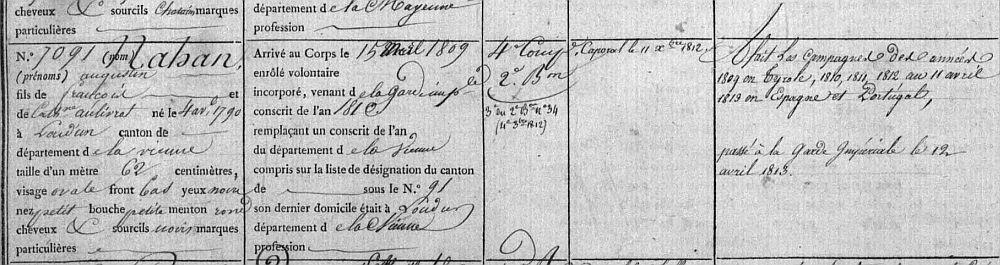 cheveux & sourcils chatain marques
particulières
département de la Mayenne
profession
N.º 7091 (nom) Rahan,
(prénoms) augustin
fils de francois et
de Cathne né le 4 avl 1790
à Loudun canton de
département de la vienne
taille d'un mètre 62 centimètres,
visage ovale front bas yeux noirs
nez petit bouche petite menton rond
cheveux & sourcils noirs marques
particulières
Arrivé au Corps le 15 avril 1809
enrôlé volontaire
incorporé, venant de la Garde imple
conscrit de l'an 1810
remplaçant un conscrit de l'an
du département de la Vienne
compris sur la liste de désignation du canton
de sous le N.º 91
son dernier domicile était à Loudun
département de la Vienne
profession
4e Compie
2e Bon
3e du 2e Bon nº 34
(1er 3bre 1812)
Caporal le 11 Xbre 1812,
a fait les campagnes des années
1809 en Tyrole, 1810, 1811, 1812 au 11 avril
1813 en Espagne et Portugal,
passé à la Garde Impériale le 12
avril 1813.